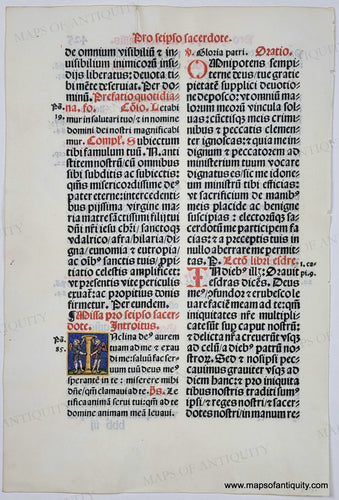 Pro seipso sacerdote.
de omnium visibiliū & in
uisibilium inimicorū insi
dijs liberatus: deuota ti
bi mēte deseruiat. Per do
minū. Prefatio quotidia
na. fo. Cōio. Letabi
Ps.
19.
mur in salutari tuo/ & in nomine
domini dei nostri magnificabi
mur. Cōpl. Subiectum
tibi famulum tuū .N. anti
stitem nostrū/ cū omnibus
sibi subditis ac subiectis:
qm̄s misericordissime de⁹
pater eterne: intercedenti
bus pijssima virgine ma
ria matre sācti ssimi filij tui
dn̄i nr̄i iesu chr̄i: sanctoqꝫ
vdalrico/ afra/ hilaria/ di
gna/ eunomia & eutropia/
ac oīb⁹ sanctis tuis/ ppi
tiatio celestis amplificet: &
vt presentis vite periculis
exuat̄: ac propitius donis
firmetur. Per eundem.
Missa pro seipso sacer
dote. Introitus.
Ps.
85.
Inclina dn̄e⁹ aurem
tuam ad me & exau
di me: saluū fac ser
uum tuū deus me⁹
sperantē in te: miserere mihi
dn̄e/ qm̄ clamaui ad te. ps. Le
tifica animā serui tui: qm̄ ad te
domine animam meā leuaui.
v. Gloria patri. Oratio.
Omnipotens sempi
terne deus/ tue gratie
pietatē supplici deuotio
ne deposco: vt omniū ma
lorum meorū vincula sol
uas: cūctisqꝫ meis crimi
nibus & peccatis clemen
ter ignoscas: & quia me in
dignum & peccatorem ad
ministerium tuum vocare
dignatus es/ sic me idone
um ministrū tibi efficias:
vt sacrificium de manib⁹
meis placide ac benigne
suscipias: electorūqꝫ sa
cerdotū me participem fa
cias: & a preceptis tuis in
nullo aberrare me permit
tas. P. Lectō libri esdre.
In dieb⁹ ill: Orauit
1. ca.
pi. 9.
esdras dicēs. Deus
me⁹/ cōfundor & erubesco le
uare faciē meam ad te: qm̄
iniquitates nr̄e multipli
cate sunt sup caput nostrū/
& delicta nr̄a creuerūt vsqꝫ
ad celū/ a dieb⁹ patrū no
strorum. Sed & nosipsi pec
cauimus grauiter vsqꝫ ad
diem hanc: & pro iniquita
tibus nostris traditi sum⁹
ipsi/ & reges nostri/ & sacer
dotes nostri/ in manum re⸗
MAPS OF ANTIQUITY
www.mapsofantiquity.com